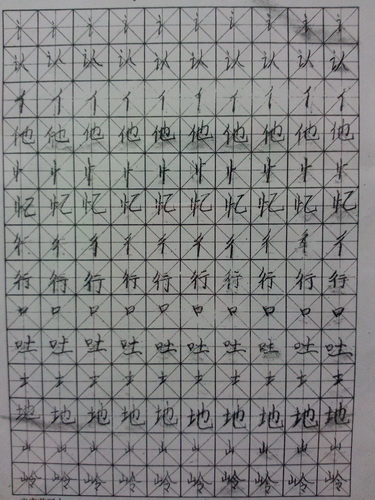 讠讠讠讠讠讠讠讠讠讠
认认认认认认认认认认
亻亻亻亻亻亻亻亻亻亻
他他他他他他他他他他
忄忄忄忄忄忄忄忄忄忄
忆忆忆忆忆忆忆忆忆忆
彳彳彳彳彳彳彳彳彳彳
行行行行行行行行行行
口口口口口口口口口口
吐吐吐吐吐吐吐吐吐吐
土土土土土土土土土土
地地地地地地地地地地
山山山山山山山山山山
岭岭岭岭岭岭岭岭岭岭